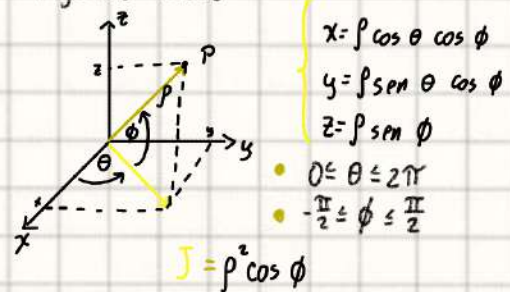 z
z
P
ρ
ϕ
θ
y
y
x
x
x = ρ cos θ cos ϕ
y = ρ sen θ cos ϕ
z = ρ sen ϕ
• 0 ≤ θ ≤ 2π
• -π/2 ≤ ϕ ≤ π/2
J = ρ² cos ϕ